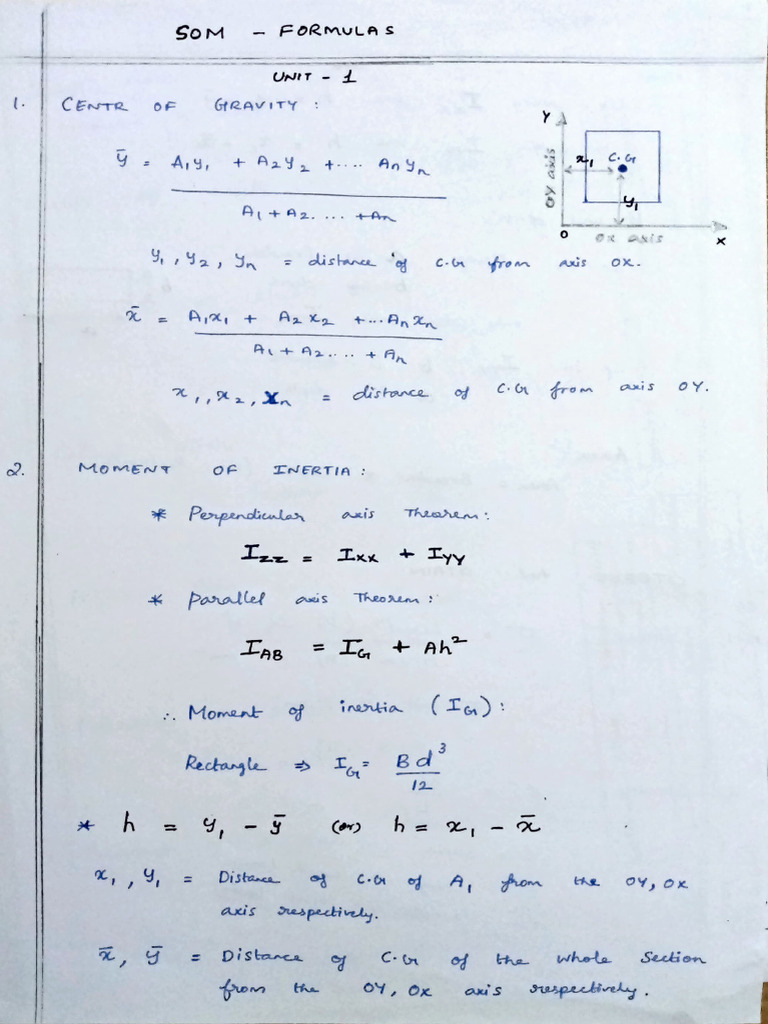 SOM - FORMULAS
UNIT - 1
1. CENTR OF GRAVITY :
ȳ = A₁y₁ + A₂y₂ +.... Anyn
A₁ + A₂. ... +An
Y
OY axis
x₁
C.G
y₁
O
OX axis
X
y₁, y₂, yn = distance of C.G from axis OX.
x̄ = A₁x₁ + A₂x₂ +...Anxn
A₁ + A₂.... + An
x₁, x₂, xn = distance of C.G from axis OY.
2. MOMENT OF INERTIA :
* Perpendicular axis Theorem :
Izz = Ixx + Iyy
* Parallel axis Theorem :
IAB = IG + Ah²
∴ Moment of inertia (IG) :
Rectangle ⇒ IG = Bd³
12
* h = y₁ - ȳ (or) h = x₁ - x̄
x₁, y₁ = Distance of C.G of A₁ from the OY, OX
axis respectively.
x̄, ȳ = Distance of C.G of the whole Section
from the OY, OX axis respectively.